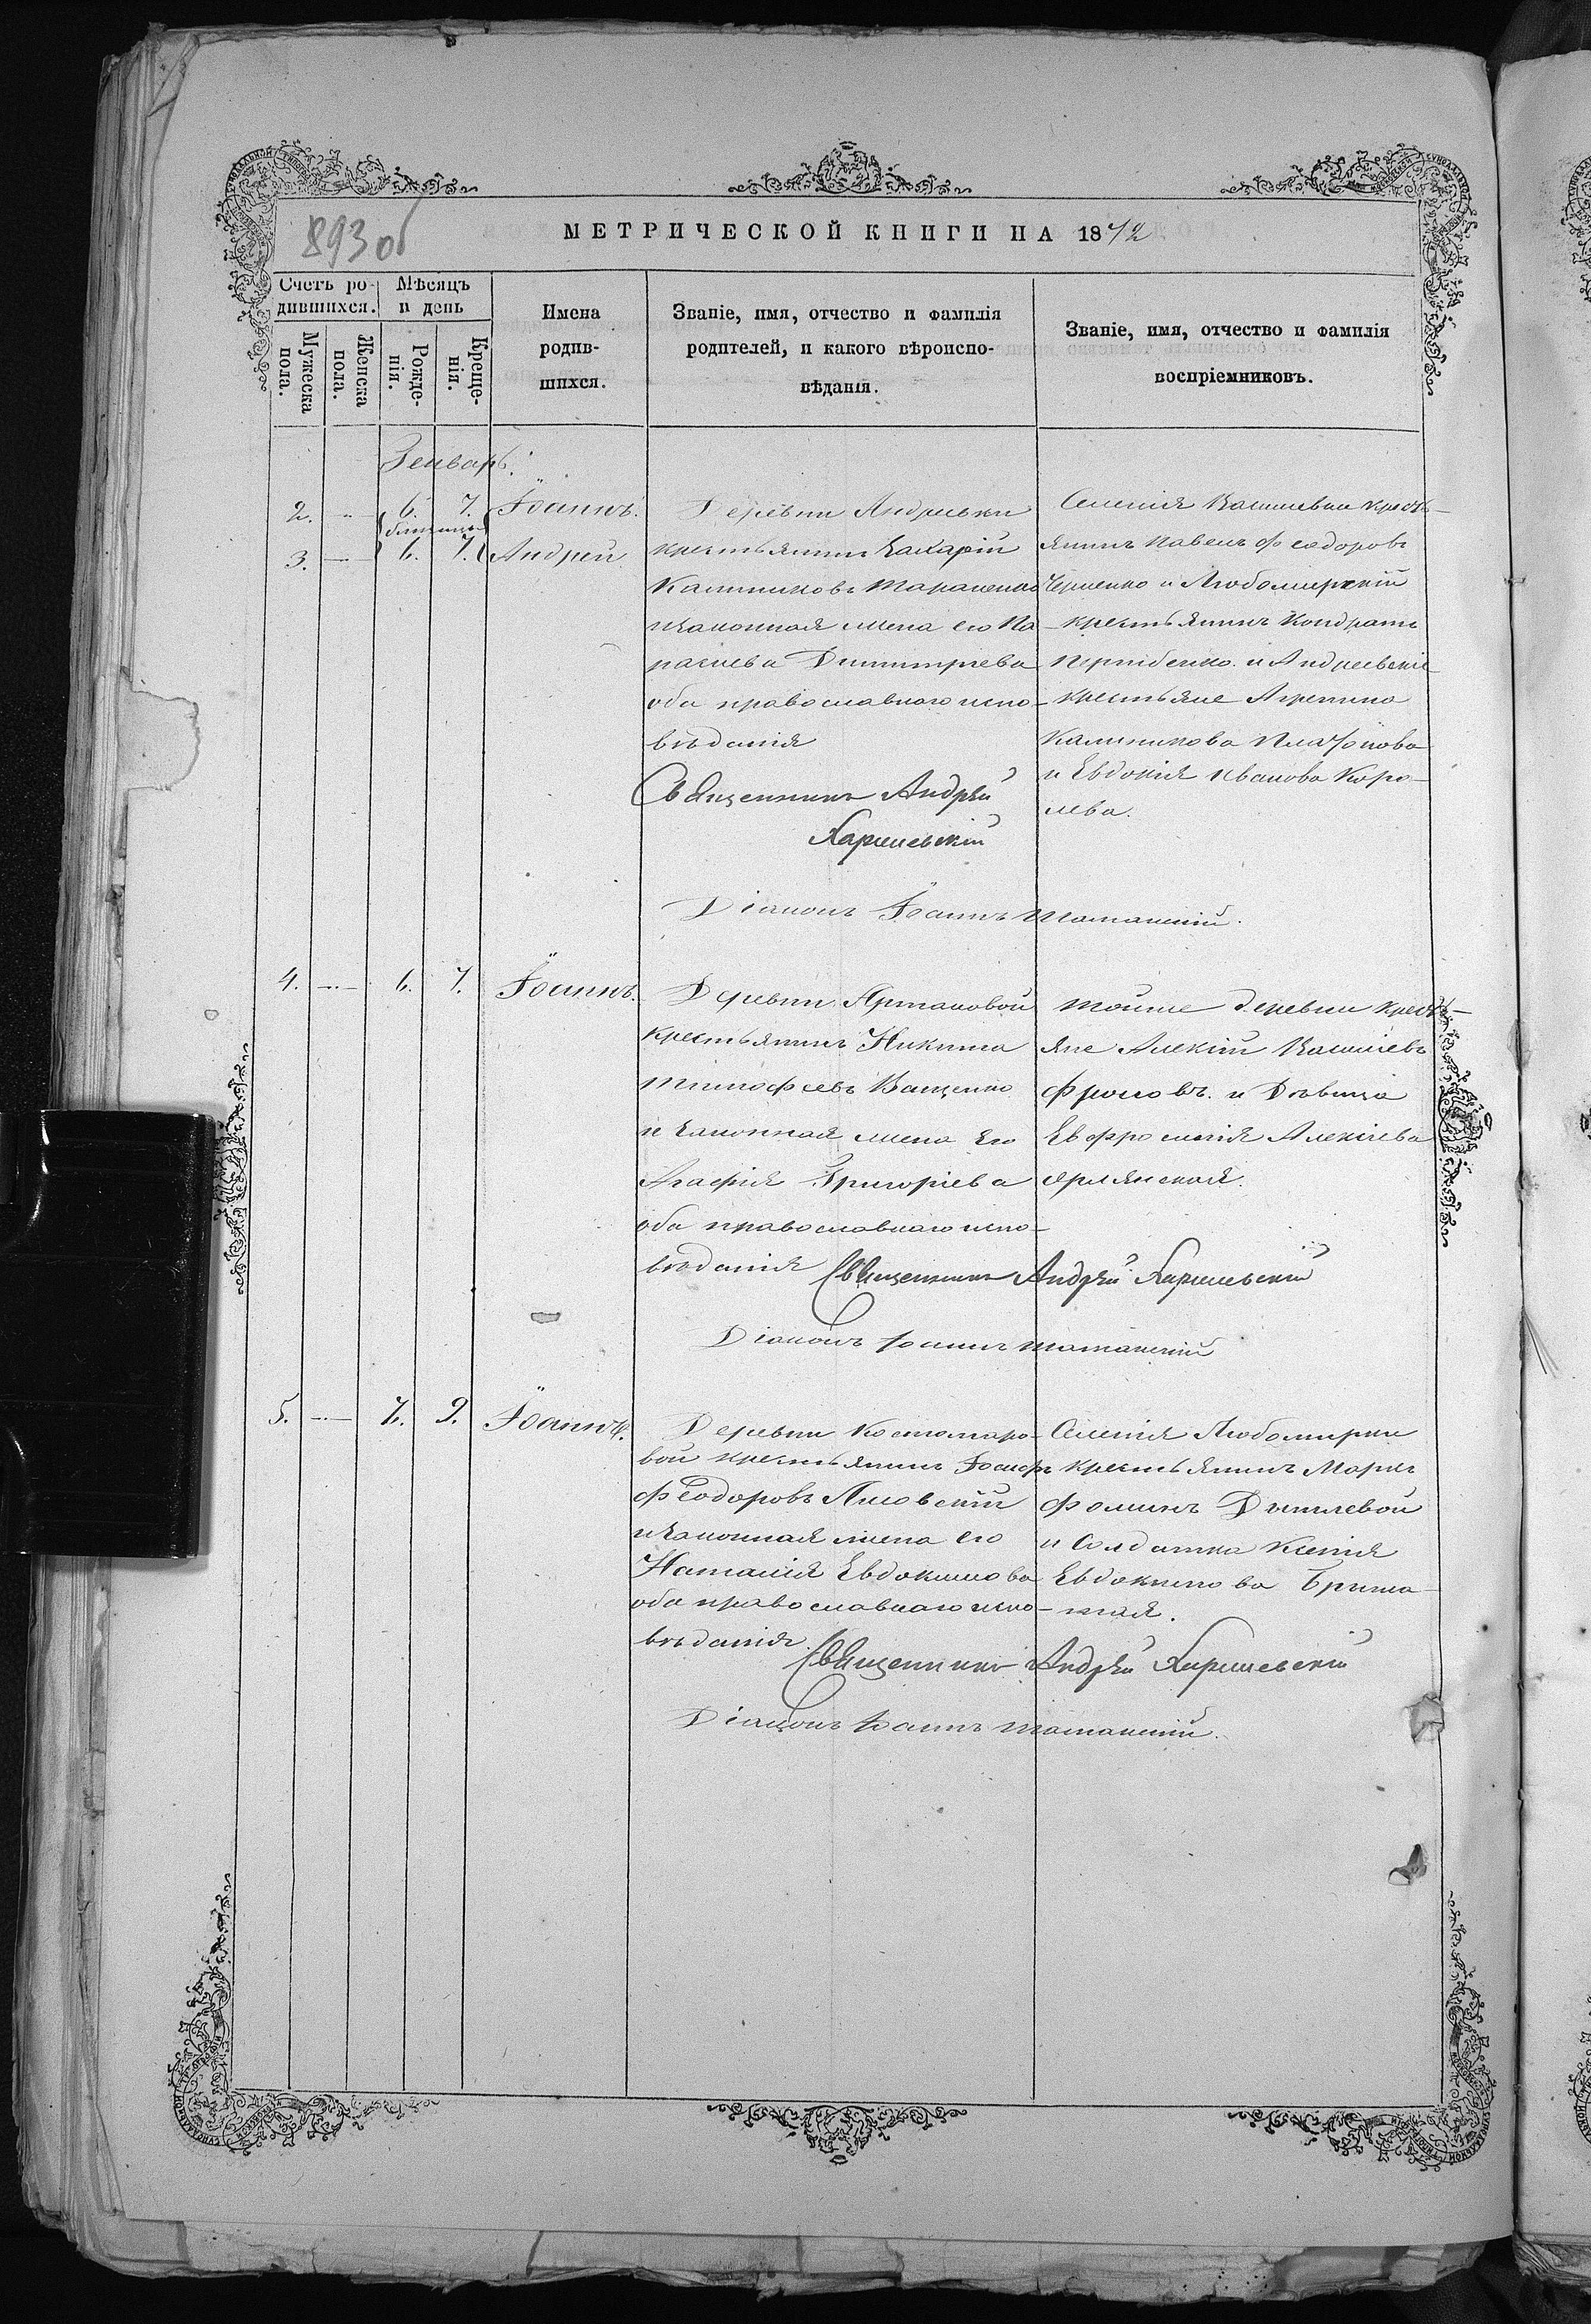 893 об
МЕТРИЧЕСКОЙ КНИГИ НА 1872
Счетъ родившихся.
Мѣсяцъ и день
Мужеска пола.
Женска пола.
Рожденія.
Крещенія.
Имена
родив-
шихся.
Званіе, имя, отчество и фамилія
родителей, и какого вѣроиспо-
вѣданія.
Званіе, имя, отчество и фамилія
воспріемниковъ.
Генварь.
2. 6. 7. Іоаннъ.
близнецы
3. 6. 7. Андрей
Деревни Андреевки
крестьянинъ Захарій
Калинниковъ Тараненко
и законная жена его Па
раскева Димитріева
оба православнаго испо-
вѣданія
Селенія Васильевки крест-
янинъ Павелъ Феодоровъ
Черненко и Любомирскій
крестьянинъ Кондратъ
и Андреевскіе
крестьяне Агрепина
Калиникова Платонова
и Евдокія Иванова Коро-
лева.
Священникъ Андрей
Харшевскій
Діаконъ Іоаннъ
4. 6. 7. Іоаннъ.
Деревни Артаковой
крестьянинъ Никита
Тимофеевъ Ващенко
и законная жена Его
Агафія Григоріева
оба православнаго испо-
вѣданія
тойже деревни крест-
яне Алексій Васильевъ
Фроловъ. и Дѣвица
Евфросинія Алексіева
Священникъ Андрей Харшевскій
Діаконъ Іоаннъ
5. 7. 9. Іоаннъ.
Деревни Костомаро-
вой крестьянинъ Іосифъ
Феодоровъ Лисовскій
и законная жена его
Наталія Евдокимова
оба православнаго испо-
вѣданія
Селенія Любомирки
крестьянинъ Маркъ
Фоминъ
и Солдатка Ксенія
Евдокимова
Священникъ Андрей Харшевскій
Діаконъ Іоаннъ